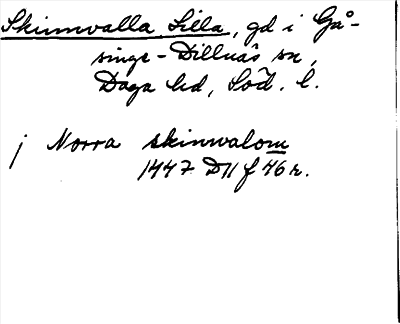 Skinnvalla Lilla, gd i Gå-
singe-Dillnäs sn,
Daga hd, Söd. l.
j Norra skinwalom
1447 D11 f 76 r.